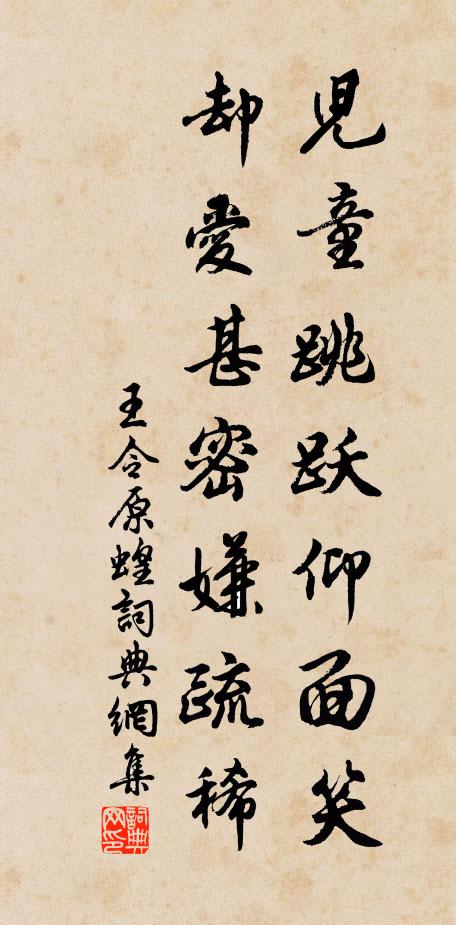 児童跳跃仰面笑
却愛甚密嫌疏稀
王令原蝗詞典網集
詞典网印